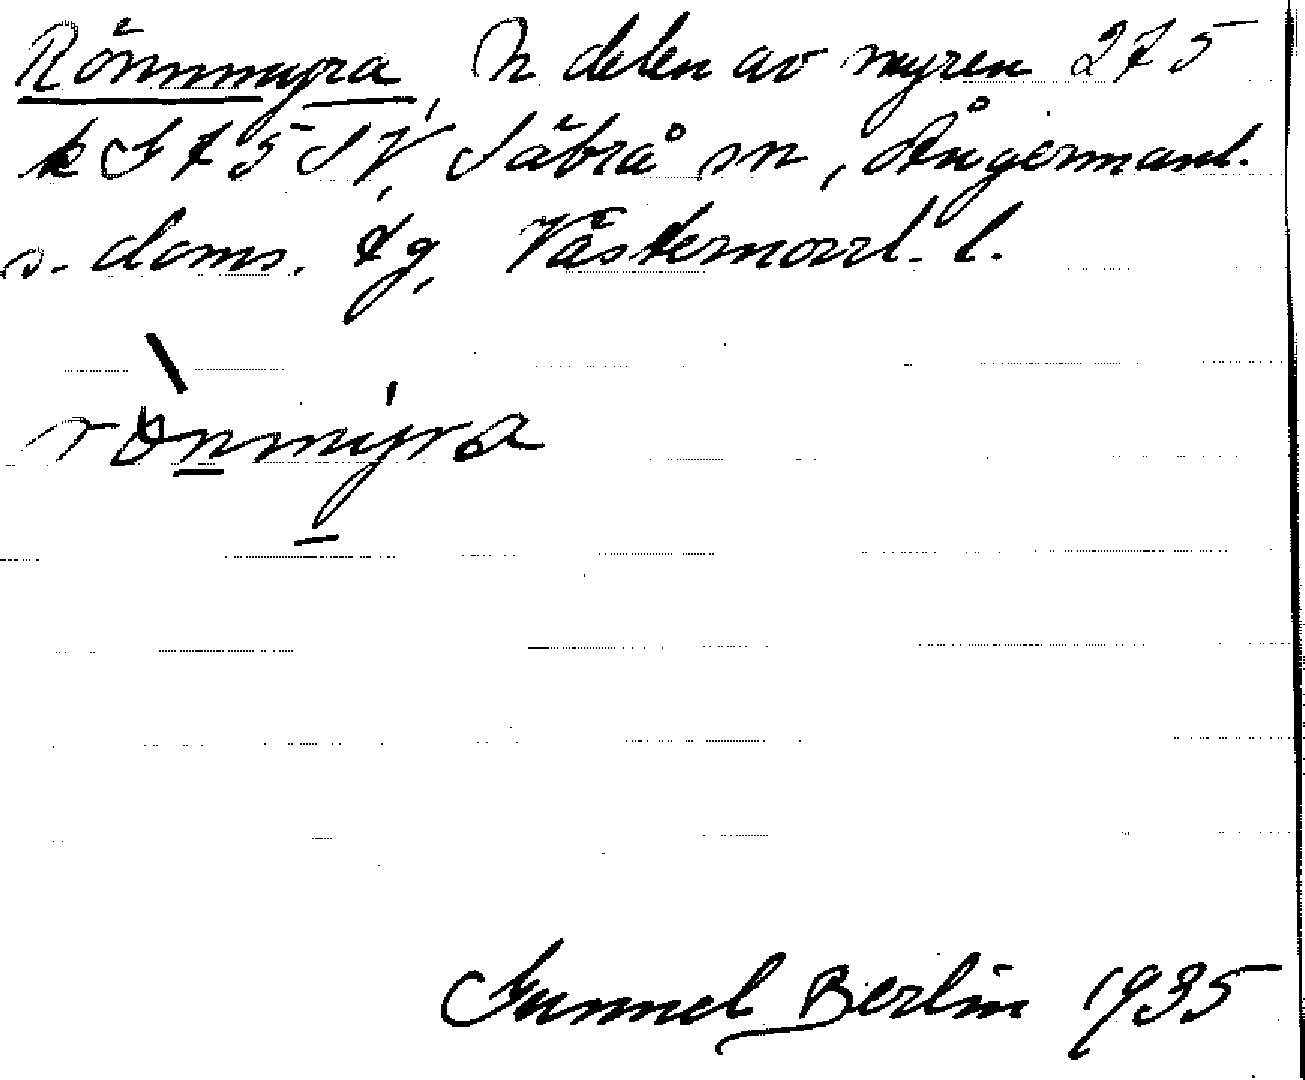 Rönnmyra, N delen av myren 275
k S 75 SV, Säbrå sn, Ångermanl.
s. doms. tg, Västernorrl. l.
rònmýra
Gunnel Berlin 1935